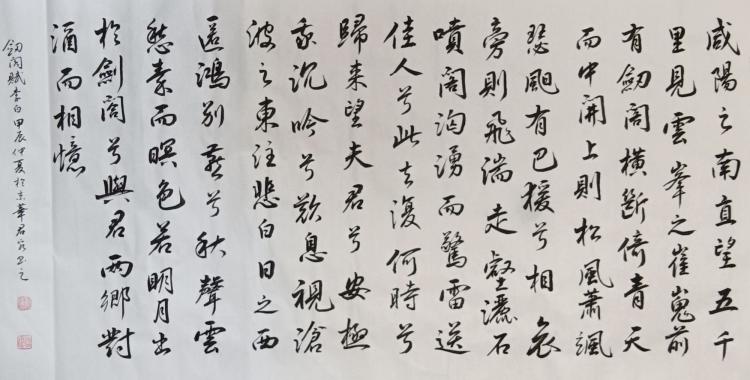 咸陽之南直望五千
里見雲峯之崔嵬前
有劒閣橫斷倚青天
而中開上則松風蕭颯
瑟颸有巴猨兮相哀
旁則飛湍走壑灑石
噴閣洶湧而驚雷送
佳人兮此去復何時兮
歸來望夫君兮安極
我沉吟兮歎息視滄
波之東注悲白日之西
匿鴻別燕兮秋聲雲
愁秦而暝色若明月出
於劍閣兮與君兩鄉對
酒而相憶
劒閣賦李白甲辰仲夏於京華君書之